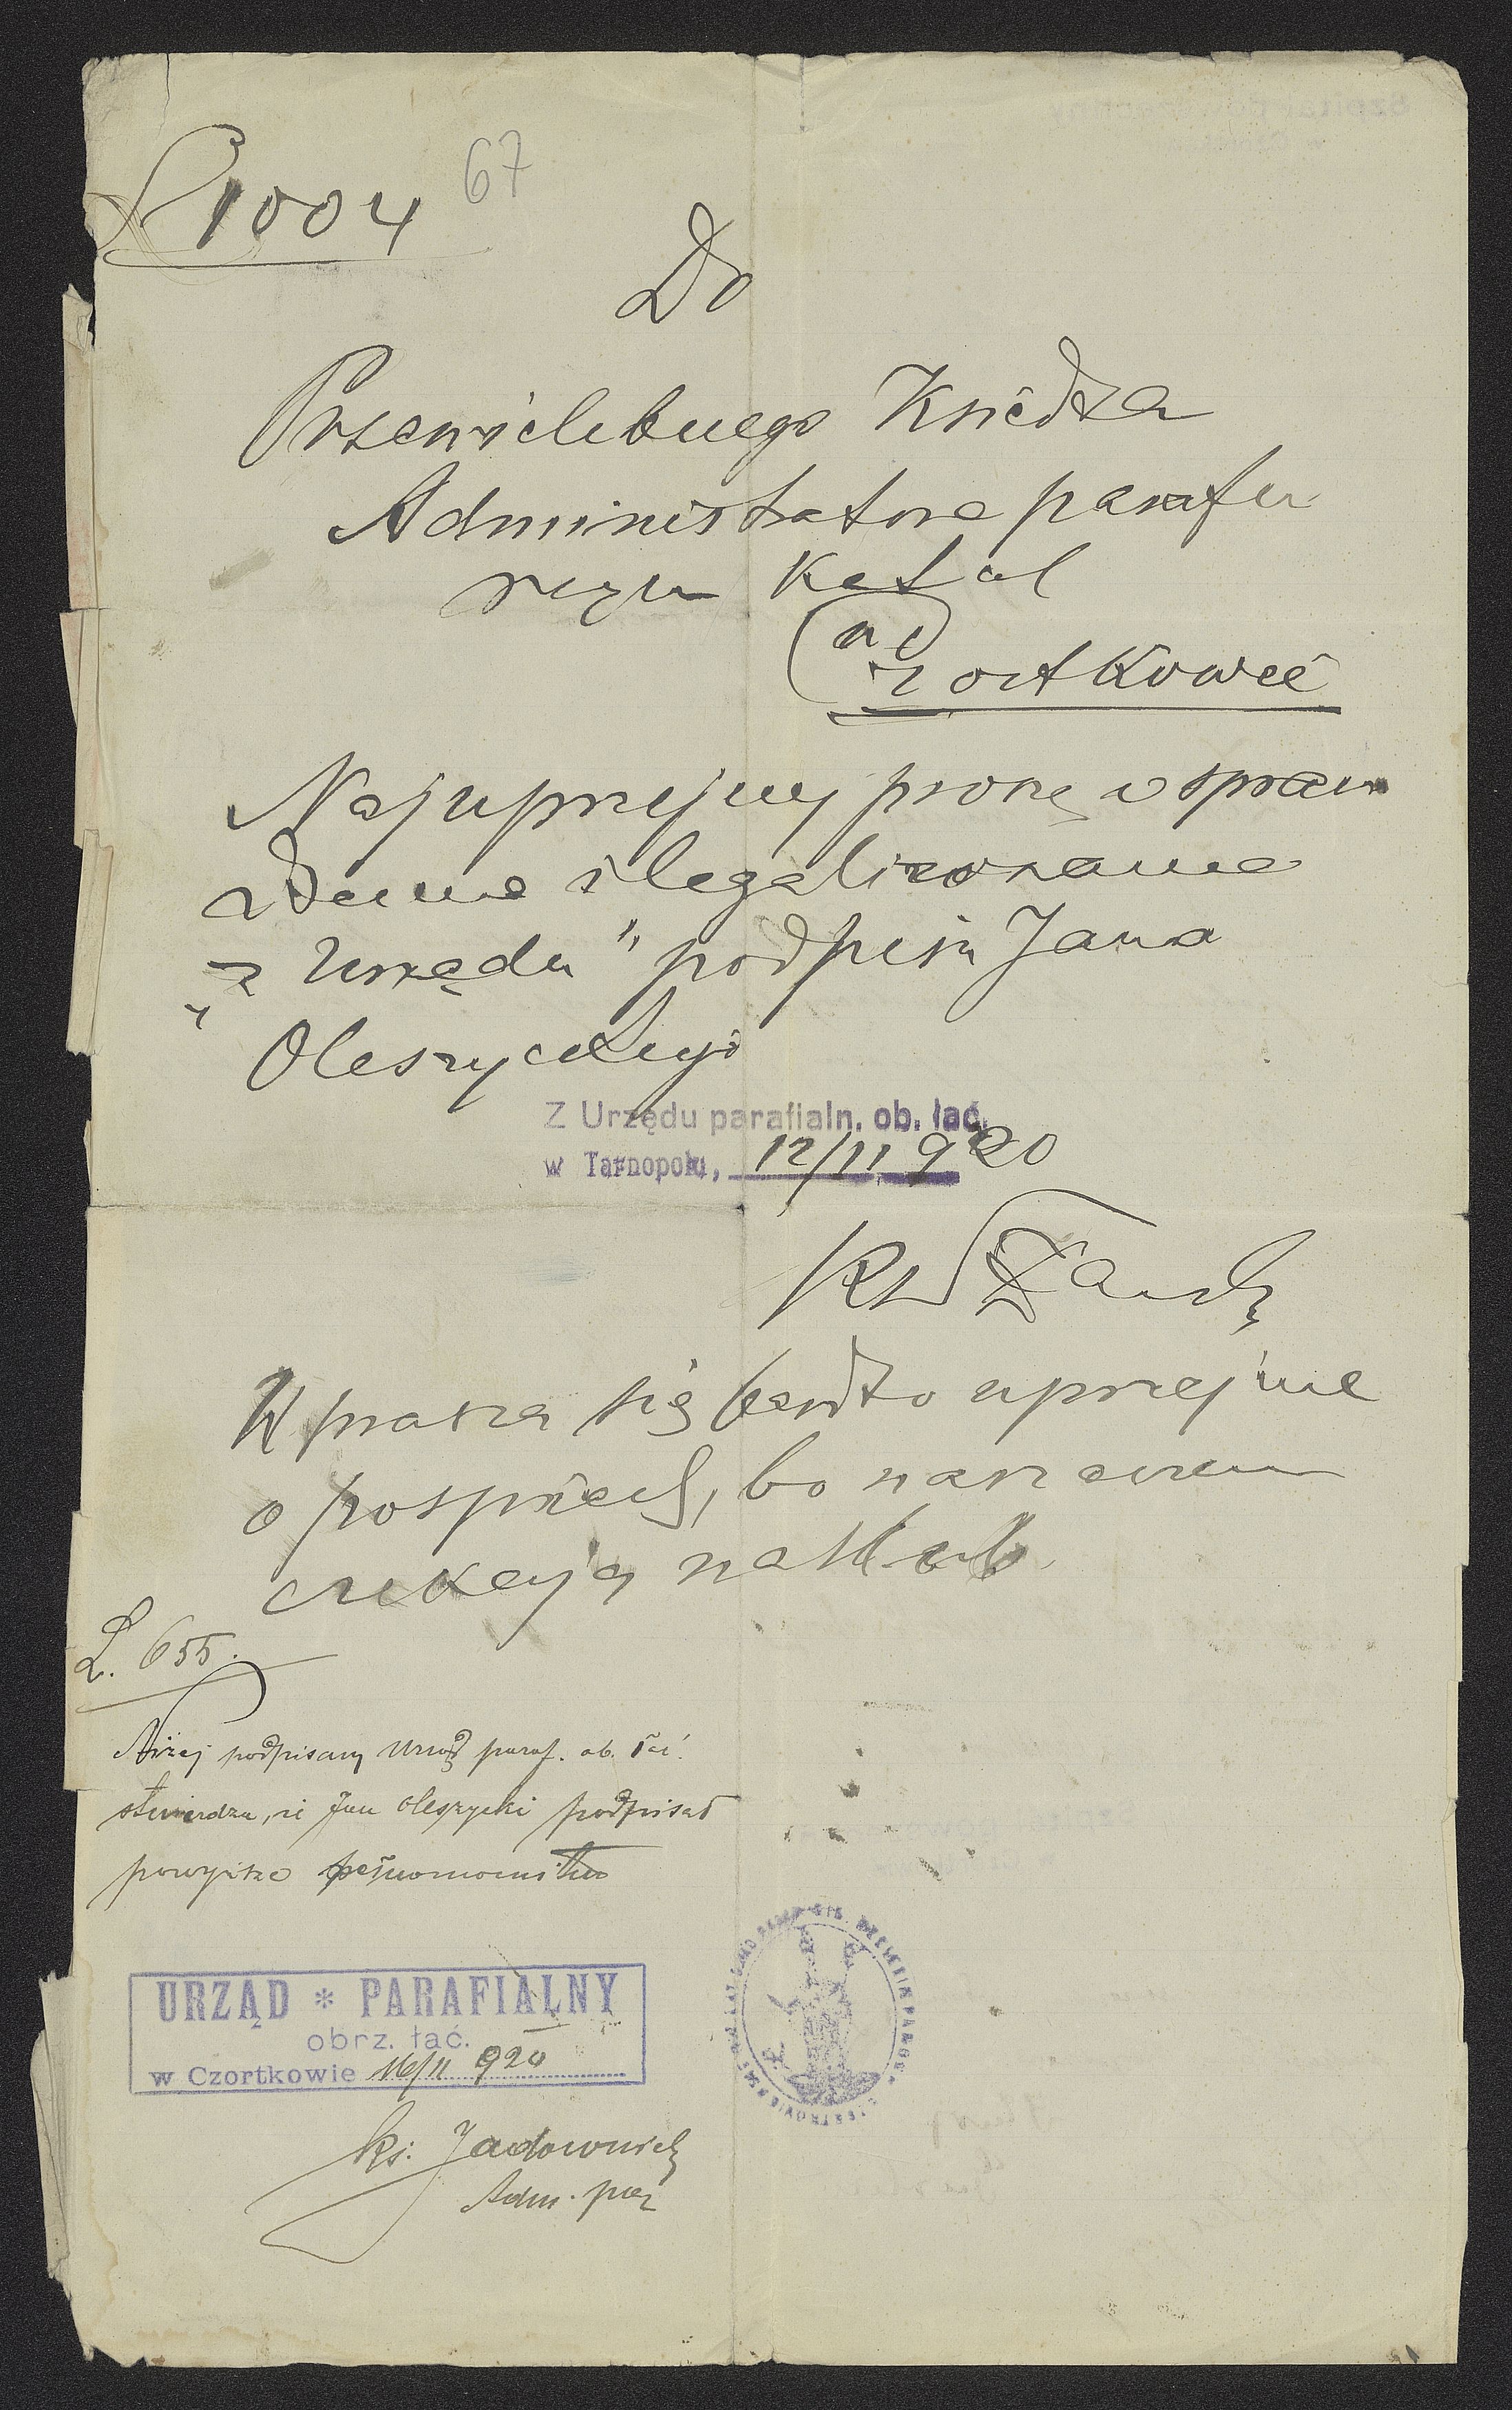 L 1004 67
Do
Przewielebnego Księdza
Administratora parafii
rzym katol
w
Czortkowie
Najuprzejmiej proszę o spraw
dzenie i legalizowanie
"z Urzędu" podpisu Jana
Oleszyckiego
Z Urzędu parafialn. ob. łać.
w Tarnopolu, 12/11 920
Uprasza się bardzo uprzejmie
o pospiech, bo narzeczeni
czekają na ślub.
L. 655.
Niżej podpisany Urząd paraf. ob. łać.
stwierdza, że Jan Oleszycki podpisał
powyższe pełnomocnictwo
URZĄD * PARAFIALNY
obrz. łać.
w Czortkowie 16/11 920
ks. Jadownicki
Adm. par